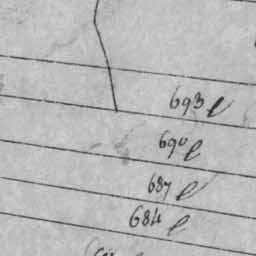 693 e
690 e
687 e
684 e